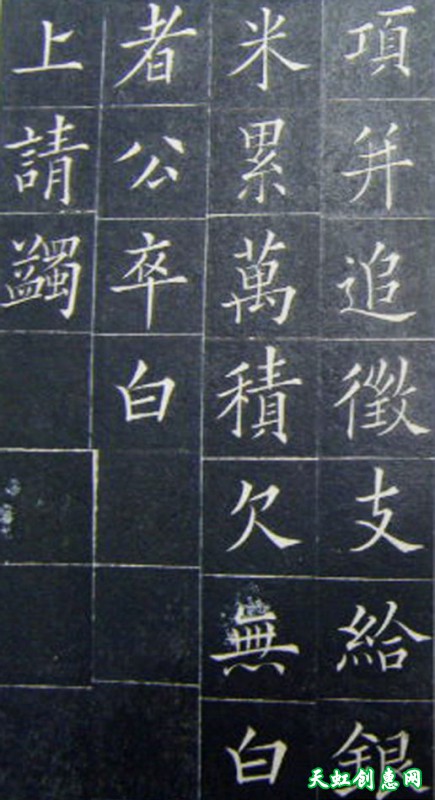 項并追徵支給銀
米累萬積欠無白
者公卒白
上請蠲
天虹创惠网